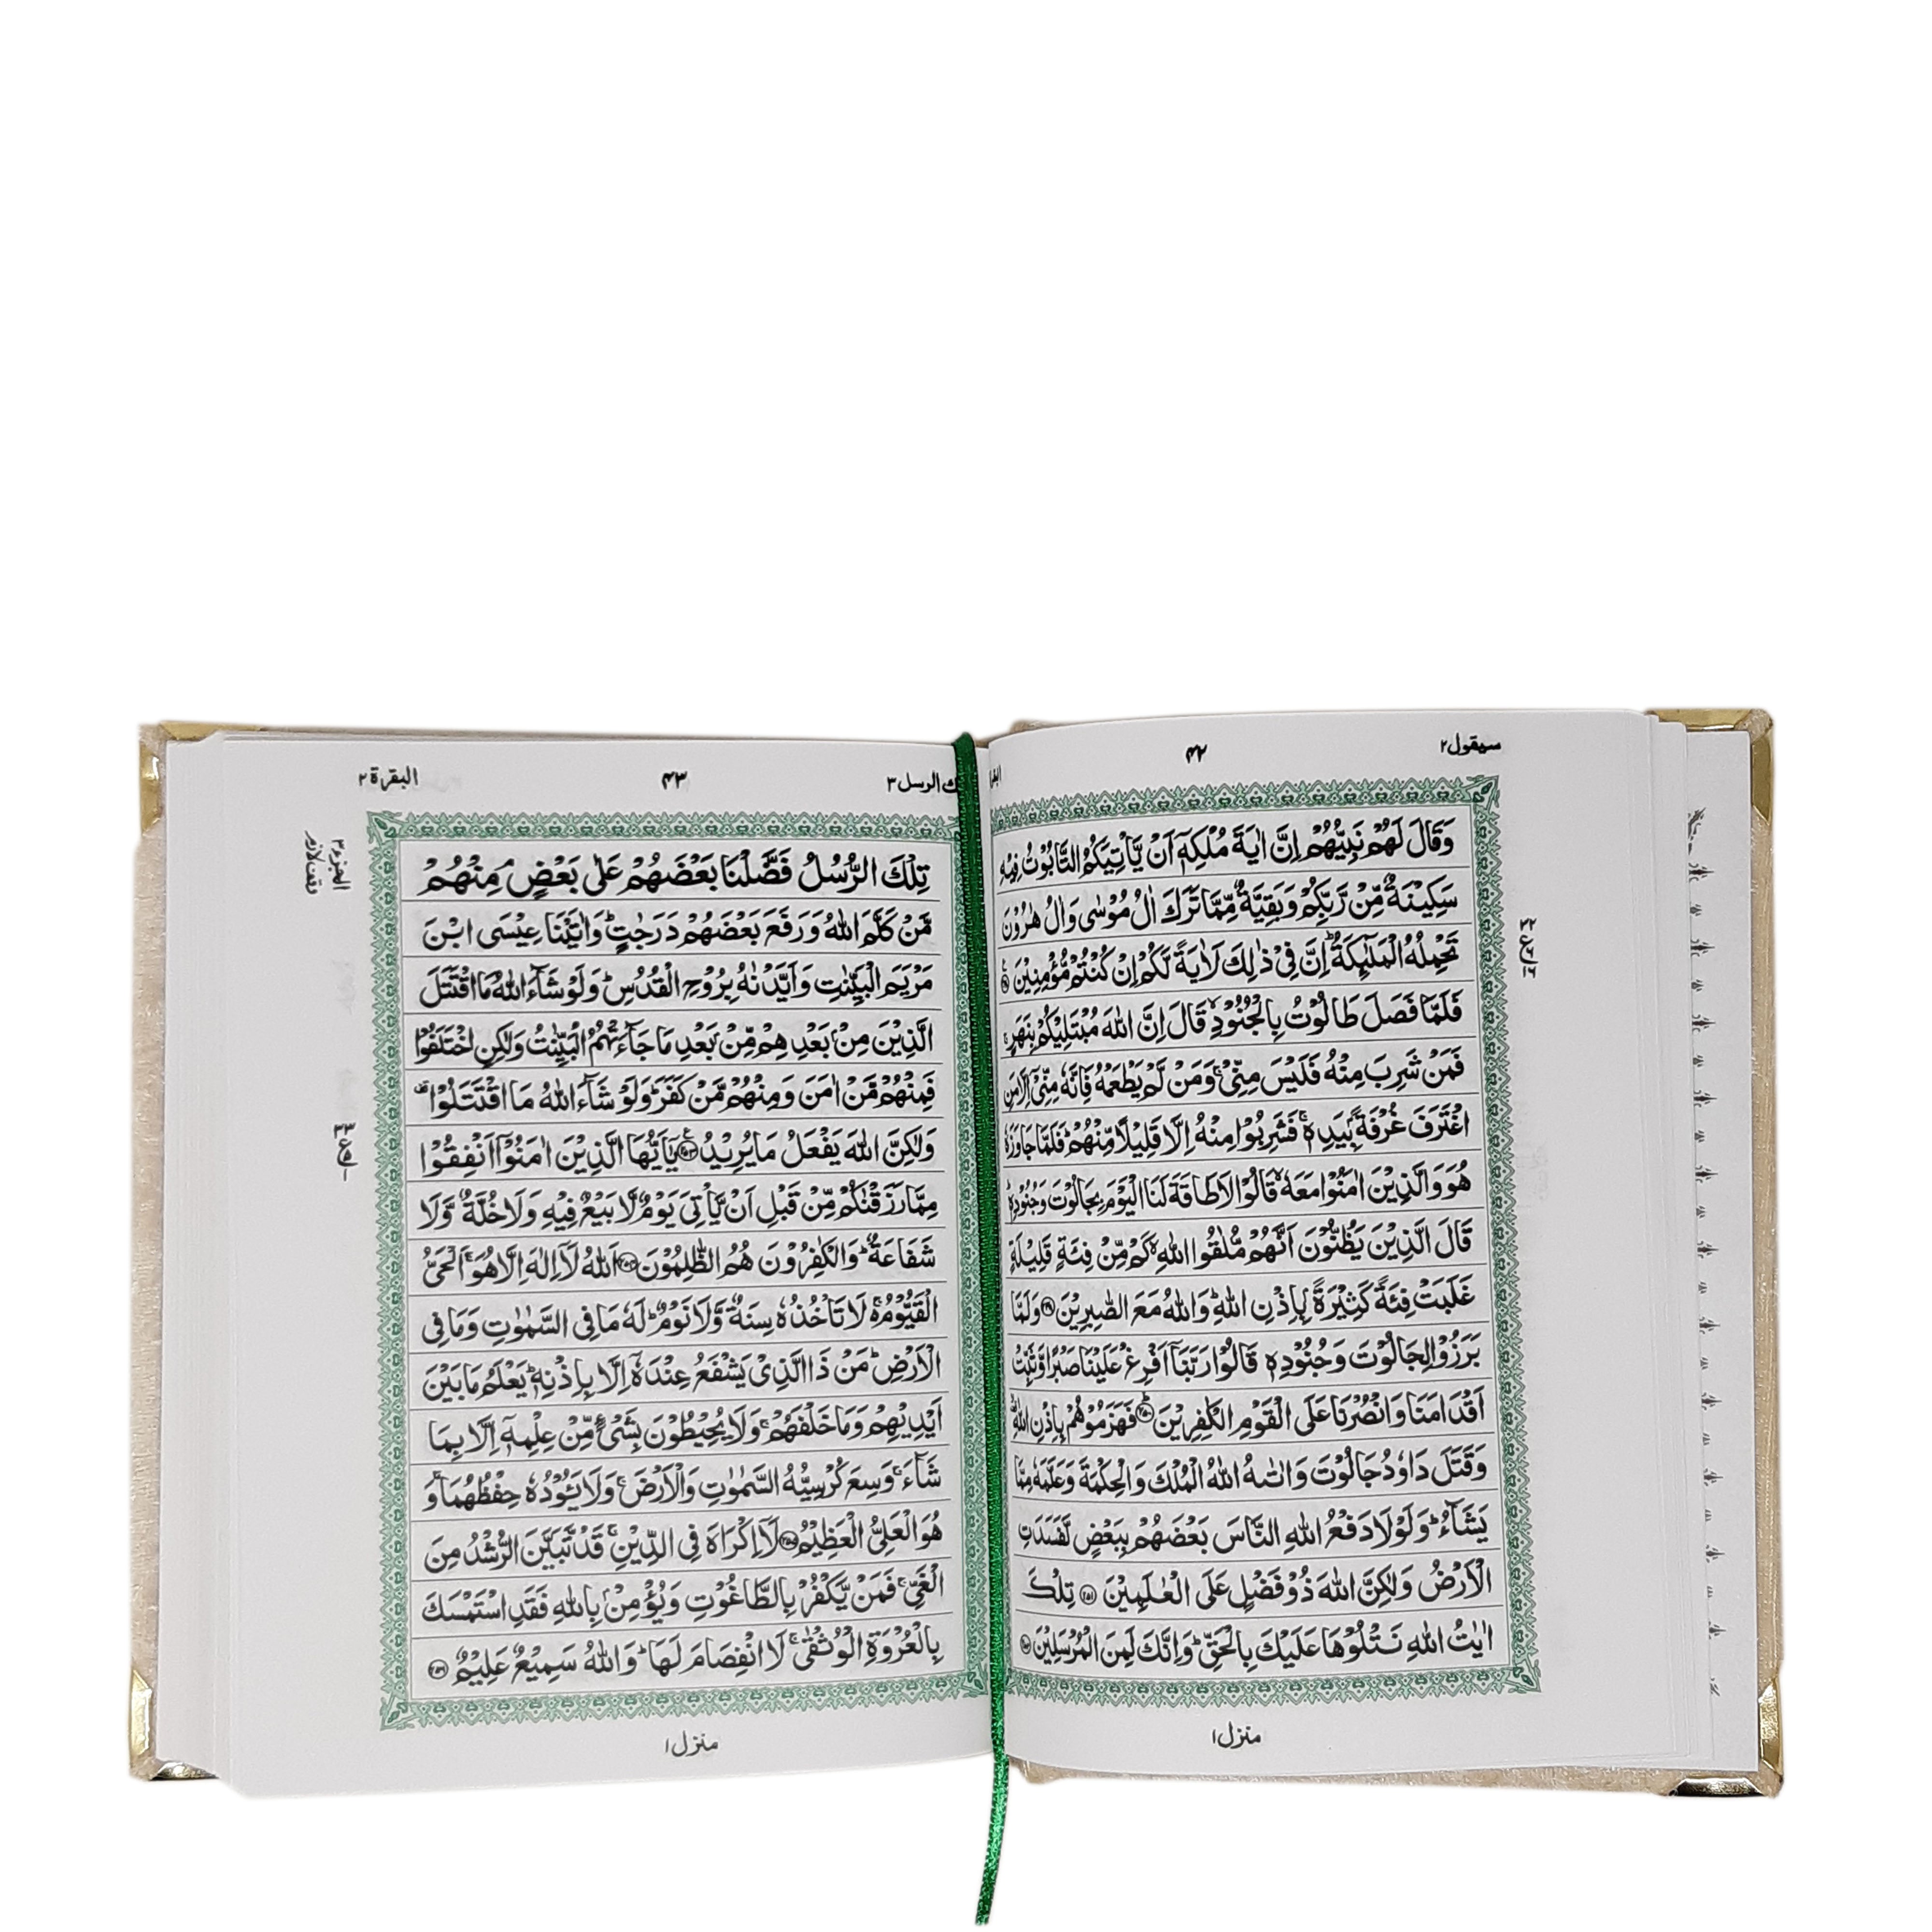 سیقول ۲
۴۲
وَقَالَ لَهُمْ نَبِيُّهُمْ اِنَّ اٰيَةَ مُلْكِهٖۤ اَنْ يَّاْتِيَكُمُ التَّابُوْتُ فِيْهِ
سَكِيْنَةٌ مِّنْ رَّبِّكُمْ وَبَقِيَّةٌ مِّمَّا تَرَكَ اٰلُ مُوْسٰى وَاٰلُ هٰرُوْنَ
تَحْمِلُهُ الْمَلٰٓئِكَةُ ؕ اِنَّ فِيْ ذٰلِكَ لَاٰيَةً لَّكُمْ اِنْ كُنْتُمْ مُّؤْمِنِيْنَ
فَلَمَّا فَصَلَ طَالُوْتُ بِالْجُنُوْدِ ۙ قَالَ اِنَّ اللّٰهَ مُبْتَلِيْكُمْ بِنَهَرٍ ۚ
فَمَنْ شَرِبَ مِنْهُ فَلَيْسَ مِنِّيْ ۚ وَمَنْ لَّمْ يَطْعَمْهُ فَاِنَّهٗ مِنِّيْۤ اِلَّا مَنِ
اغْتَرَفَ غُرْفَةًۢ بِيَدِهٖ ۚ فَشَرِبُوْا مِنْهُ اِلَّا قَلِيْلًا مِّنْهُمْ ؕ فَلَمَّا جَاوَزَهٗ
هُوَ وَالَّذِيْنَ اٰمَنُوْا مَعَهٗ ۙ قَالُوْا لَا طَاقَةَ لَنَا الْيَوْمَ بِجَالُوْتَ وَجُنُوْدِهٖ ؕ
قَالَ الَّذِيْنَ يَظُنُّوْنَ اَنَّهُمْ مُّلٰقُوا اللّٰهِ ۙ كَمْ مِّنْ فِئَةٍ قَلِيْلَةٍ
غَلَبَتْ فِئَةً كَثِيْرَةًۢ بِاِذْنِ اللّٰهِ ؕ وَاللّٰهُ مَعَ الصّٰبِرِيْنَ ﴿۲۴۹﴾ وَلَمَّا
بَرَزُوْا لِجَالُوْتَ وَجُنُوْدِهٖ قَالُوْا رَبَّنَاۤ اَفْرِغْ عَلَيْنَا صَبْرًا وَّثَبِّتْ
اَقْدَامَنَا وَانْصُرْنَا عَلَى الْقَوْمِ الْكٰفِرِيْنَ ﴿۲۵۰﴾ؕ فَهَزَمُوْهُمْ بِاِذْنِ اللّٰهِ
وَقَتَلَ دَاوٗدُ جَالُوْتَ وَاٰتٰىهُ اللّٰهُ الْمُلْكَ وَالْحِكْمَةَ وَعَلَّمَهٗ مِمَّا
يَشَآءُ ؕ وَلَوْلَا دَفْعُ اللّٰهِ النَّاسَ بَعْضَهُمْ بِبَعْضٍ لَّفَسَدَتِ
الْاَرْضُ وَلٰكِنَّ اللّٰهَ ذُوْ فَضْلٍ عَلَى الْعٰلَمِيْنَ ﴿۲۵۱﴾ تِلْكَ
اٰيٰتُ اللّٰهِ نَتْلُوْهَا عَلَيْكَ بِالْحَقِّ ؕ وَاِنَّكَ لَمِنَ الْمُرْسَلِيْنَ ﴿۲۵۲﴾
منزل ۱
ك الرسل ۳
۴۳
البقرة ۲
تِلْكَ الرُّسُلُ فَضَّلْنَا بَعْضَهُمْ عَلٰى بَعْضٍ ۘ مِنْهُمْ
مَّنْ كَلَّمَ اللّٰهُ وَرَفَعَ بَعْضَهُمْ دَرَجٰتٍ ؕ وَاٰتَيْنَا عِيْسَى ابْنَ
مَرْيَمَ الْبَيِّنٰتِ وَاَيَّدْنٰهُ بِرُوْحِ الْقُدُسِ ؕ وَلَوْ شَآءَ اللّٰهُ مَا اقْتَتَلَ
الَّذِيْنَ مِنْۢ بَعْدِهِمْ مِّنْۢ بَعْدِ مَا جَآءَتْهُمُ الْبَيِّنٰتُ وَلٰكِنِ اخْتَلَفُوْا
فَمِنْهُمْ مَّنْ اٰمَنَ وَمِنْهُمْ مَّنْ كَفَرَ ؕ وَلَوْ شَآءَ اللّٰهُ مَا اقْتَتَلُوْا
وَلٰكِنَّ اللّٰهَ يَفْعَلُ مَا يُرِيْدُ ﴿۲۵۳﴾ يٰۤاَيُّهَا الَّذِيْنَ اٰمَنُوْۤا اَنْفِقُوْا
مِمَّا رَزَقْنٰكُمْ مِّنْ قَبْلِ اَنْ يَّاْتِيَ يَوْمٌ لَّا بَيْعٌ فِيْهِ وَلَا خُلَّةٌ وَّلَا
شَفَاعَةٌ ؕ وَالْكٰفِرُوْنَ هُمُ الظّٰلِمُوْنَ ﴿۲۵۴﴾ اَللّٰهُ لَاۤ اِلٰهَ اِلَّا هُوَ ۚ اَلْحَيُّ
الْقَيُّوْمُ ۚ لَا تَاْخُذُهٗ سِنَةٌ وَّلَا نَوْمٌ ؕ لَهٗ مَا فِي السَّمٰوٰتِ وَمَا فِي
الْاَرْضِ ؕ مَنْ ذَا الَّذِيْ يَشْفَعُ عِنْدَهٗۤ اِلَّا بِاِذْنِهٖ ؕ يَعْلَمُ مَا بَيْنَ
اَيْدِيْهِمْ وَمَا خَلْفَهُمْ ۚ وَلَا يُحِيْطُوْنَ بِشَيْءٍ مِّنْ عِلْمِهٖۤ اِلَّا بِمَا
شَآءَ ۚ وَسِعَ كُرْسِيُّهُ السَّمٰوٰتِ وَالْاَرْضَ ۚ وَلَا يَـُٔوْدُهٗ حِفْظُهُمَا ۚ وَ
هُوَ الْعَلِيُّ الْعَظِيْمُ ﴿۲۵۵﴾ لَاۤ اِكْرَاهَ فِي الدِّيْنِ ۚ قَدْ تَّبَيَّنَ الرُّشْدُ مِنَ
الْغَيِّ ۚ فَمَنْ يَّكْفُرْ بِالطَّاغُوْتِ وَيُؤْمِنْۢ بِاللّٰهِ فَقَدِ اسْتَمْسَكَ
بِالْعُرْوَةِ الْوُثْقٰى ۚ لَا انْفِصَامَ لَهَا ؕ وَاللّٰهُ سَمِيْعٌ عَلِيْمٌ ﴿۲۵۶﴾
منزل ۱
الجزء ۳
وقف لازم